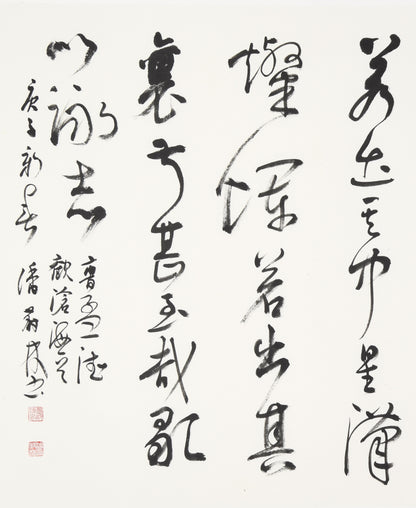 若出其中星漢
燦爛若出其
裏幸甚至哉歌
以詠志
曹孟德
觀滄海
庚子新春
潘